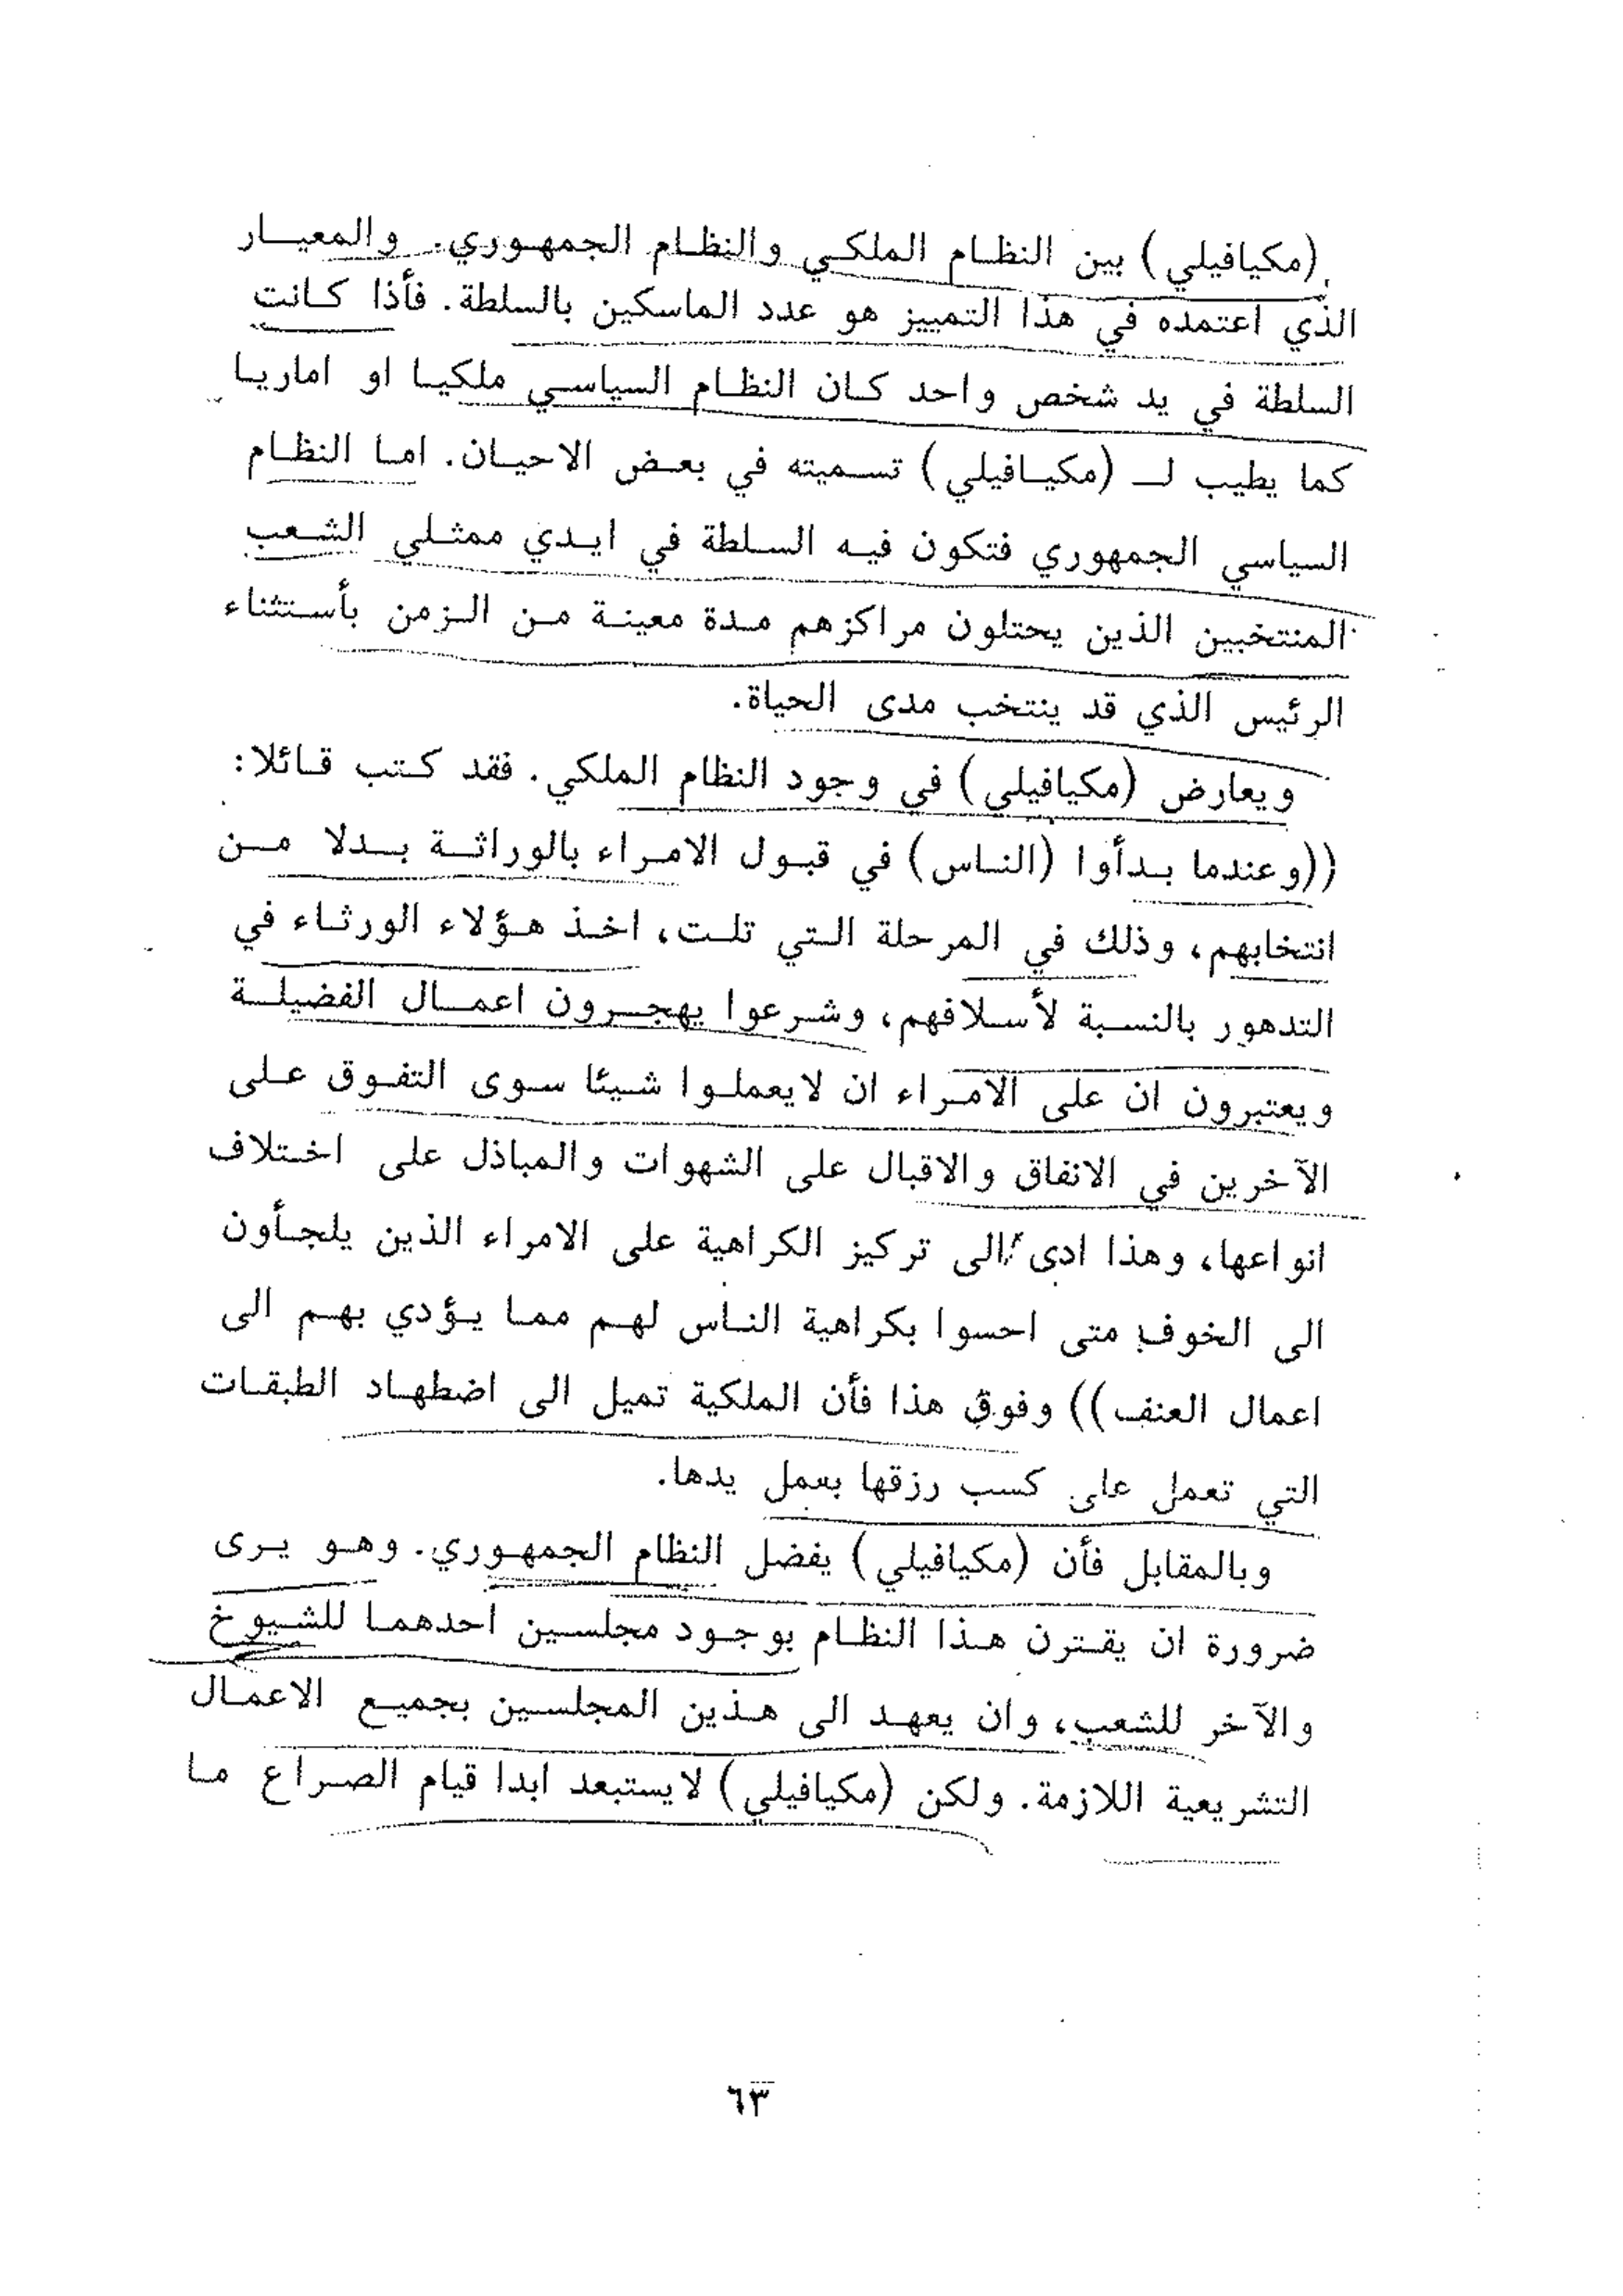 (مكيافيلي) بين النظام الملكي والنظام الجمهوري. والمعيار
الذي اعتمده في هذا التمييز هو عدد الماسكين بالسلطة. فأذا كانت
السلطة في يد شخص واحد كان النظام السياسي ملكيا او اماريا
كما يطيب لـ (مكيافيلي) تسميته في بعض الاحيان. اما النظام
السياسي الجمهوري فتكون فيه السلطة في ايدي ممثلي الشعب
المنتخبين الذين يحتلون مراكزهم مدة معينة من الزمن بأستثناء
الرئيس الذي قد ينتخب مدى الحياة.
ويعارض (مكيافيلي) في وجود النظام الملكي. فقد كتب قائلا:
((وعندما بدأوا (الناس) في قبول الامراء بالوراثة بدلا من
انتخابهم، وذلك في المرحلة التي تلت، اخذ هؤلاء الورثاء في
التدهور بالنسبة لأسلافهم، وشرعوا يهجرون اعمال الفضيلة
ويعتبرون ان على الامراء ان لايعملوا شيئا سوى التفوق على
الآخرين في الانفاق والاقبال على الشهوات والمباذل على اختلاف
انواعها، وهذا ادى الى تركيز الكراهية على الامراء الذين يلجأون
الى الخوف متى احسوا بكراهية الناس لهم مما يؤدي بهم الى
اعمال العنف)) وفوق هذا فأن الملكية تميل الى اضطهاد الطبقات
التي تعمل على كسب رزقها بعمل يدها.
وبالمقابل فأن (مكيافيلي) يفضل النظام الجمهوري. وهو يرى
ضرورة ان يقترن هذا النظام بوجود مجلسين احدهما للشيوخ
والآخر للشعب، وان يعهد الى هذين المجلسين بجميع الاعمال
التشريعية اللازمة. ولكن (مكيافيلي) لايستبعد ابدا قيام الصراع ما
٦٣